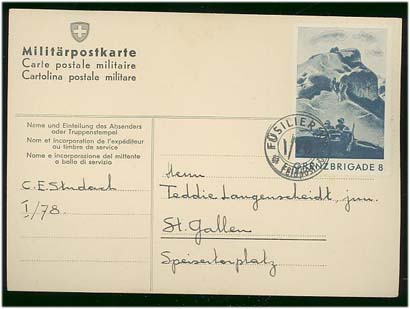 Militärpostkarte
Carte postale militaire
Cartolina postale militare
Name und Einteilung des Absenders
oder Truppenstempel
Nom et incorporation de l'expéditeur
ou timbre de service
Nome e incorporazione del mittente
o bollo di servizio
C.E. Studach
I/78.
FÜSILIER
I/
Feldpost
GRENZBRIGADE 8
Herrn
Teddie Langenscheidt, jun.
St. Gallen
Speisertorplatz